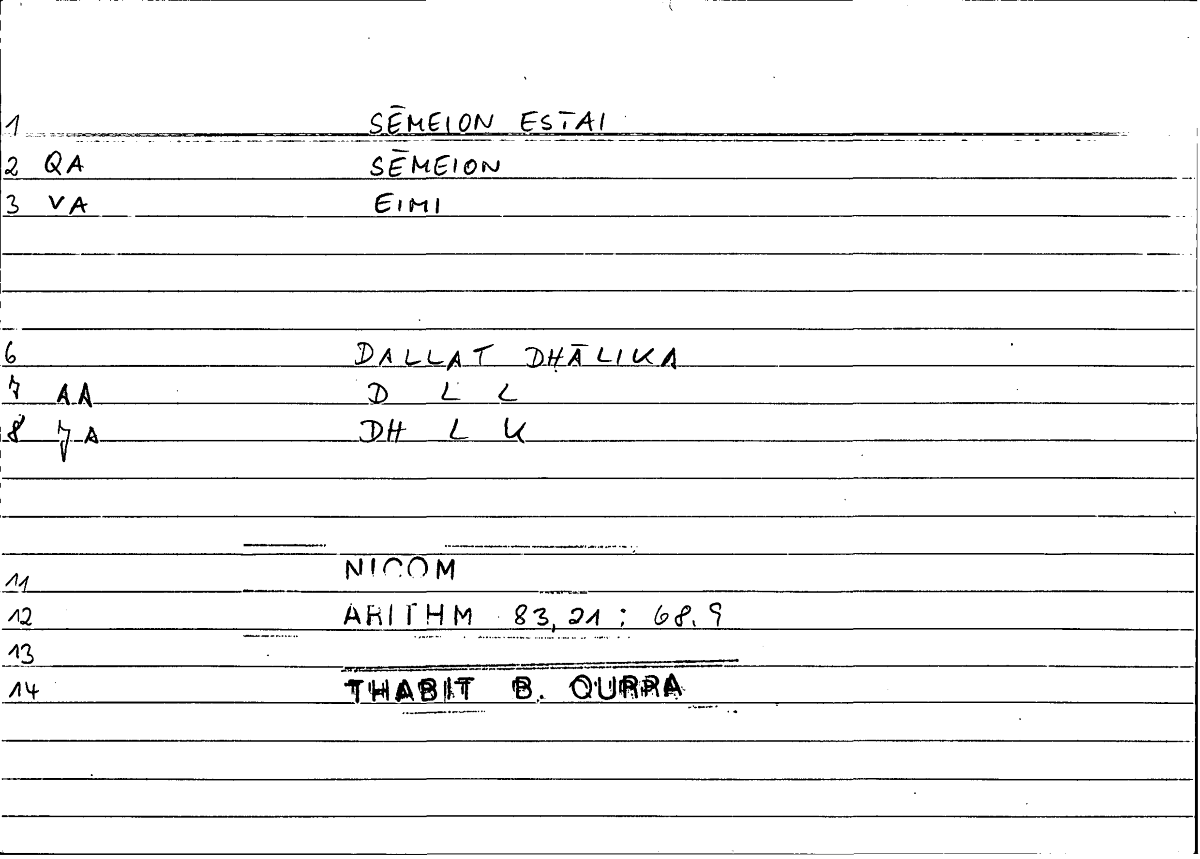 1 SĒMEION ESTAI
2 QA SĒMEION
3 VA EIMI
6 DALLAT DHĀLIKA
7 AA D L L
8 7A DH L K
11 NICOM
12 ARITHM 83,21 : 68.9
13
14 THABIT B. QURRA